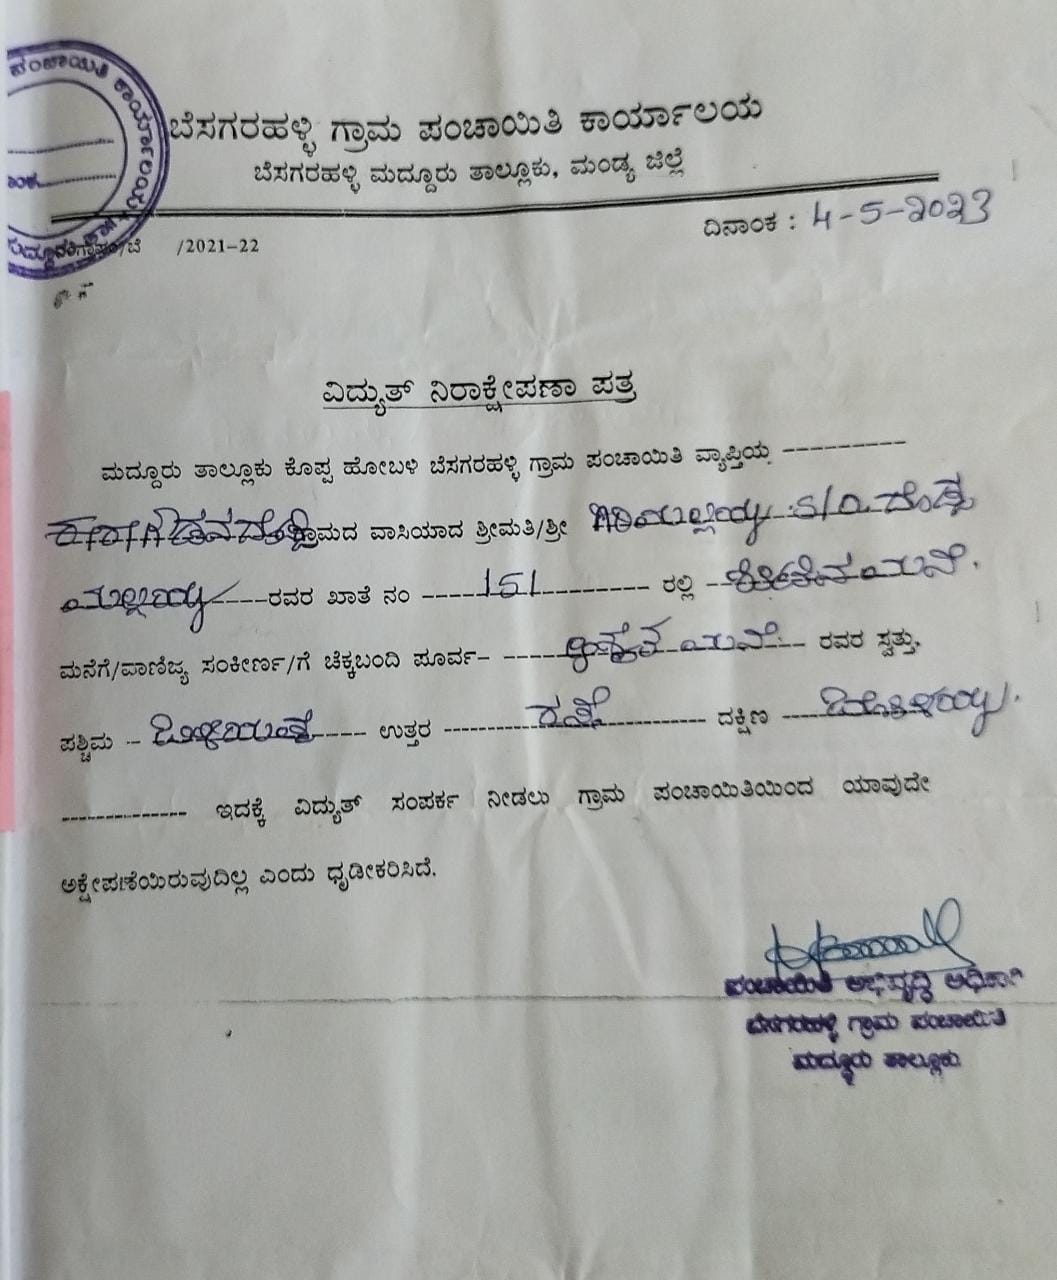 ಪಂಚಾಯಿತಿ ಕಾರ್ಯಾಲಯ
ಬೆಸಗರಹಳ್ಳಿ ಗ್ರಾಮ ಪಂಚಾಯಿತಿ ಕಾರ್ಯಾಲಯ
ಬೆಸಗರಹಳ್ಳಿ ಮದ್ದೂರು ತಾಲ್ಲೂಕು, ಮಂಡ್ಯ ಜಿಲ್ಲೆ
ದಿನಾಂಕ : 4-5-2023
/2021-22
ವಿದ್ಯುತ್ ನಿರಾಕ್ಷೇಪಣಾ ಪತ್ರ
ಮದ್ದೂರು ತಾಲ್ಲೂಕು ಕೊಪ್ಪ ಹೋಬಳಿ ಬೆಸಗರಹಳ್ಳಿ ಗ್ರಾಮ ಪಂಚಾಯಿತಿ ವ್ಯಾಪ್ತಿಯ
ಗ್ರಾಮದ ವಾಸಿಯಾದ ಶ್ರೀಮತಿ/ಶ್ರೀ ಗಿರಿಯಲ್ಲಯ್ಯ S/O ದೊಡ್ಡ
ಮಲ್ಲಯ್ಯ ರವರ ಖಾತೆ ನಂ 151 ರಲ್ಲಿ ಮನೆ.
ಮನೆಗೆ/ವಾಣಿಜ್ಯ ಸಂಕೀರ್ಣ/ಗೆ ಚೆಕ್ಕಬಂದಿ ಪೂರ್ವ- ಮನೆ ರವರ ಸ್ವತ್ತು,
ಪಶ್ಚಿಮ ಉತ್ತರ ರಸ್ತೆ ದಕ್ಷಿಣ
ಇದಕ್ಕೆ ವಿದ್ಯುತ್ ಸಂಪರ್ಕ ನೀಡಲು ಗ್ರಾಮ ಪಂಚಾಯಿತಿಯಿಂದ ಯಾವುದೇ
ಅಕ್ಷೇಪಣೆಯಿರುವುದಿಲ್ಲ ಎಂದು ಧೃಡೀಕರಿಸಿದೆ.
ಪಂಚಾಯಿತಿ ಅಭಿವೃದ್ಧಿ ಅಧಿಕಾರಿ
ಬೆಸಗರಹಳ್ಳಿ ಗ್ರಾಮ ಪಂಚಾಯಿತಿ
ಮದ್ದೂರು ತಾಲ್ಲೂಕು